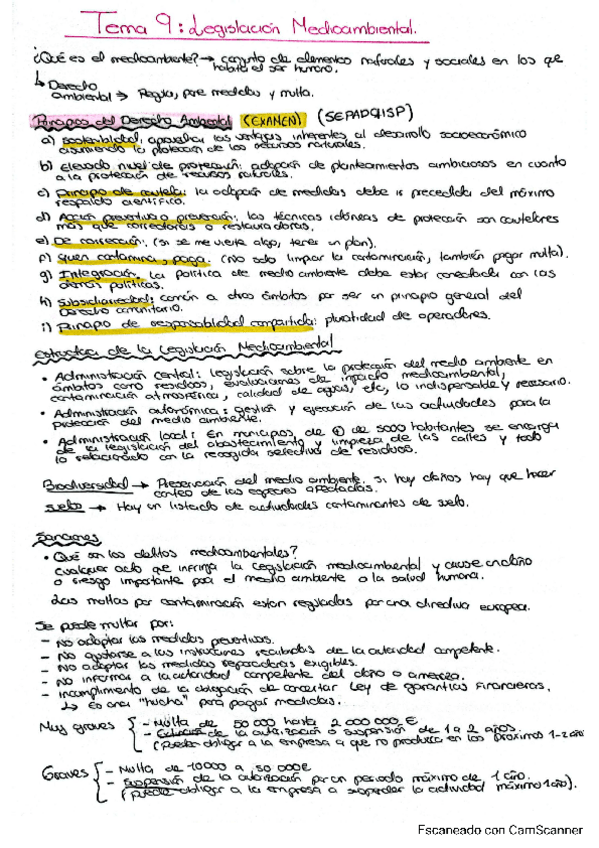 Tema 9: Legislación Medioambiental.
¿Qué es el medioambiente? → conjunto de elementos naturales y sociales en los que
habita el ser humano.
↳ Derecho
ambiental → Regula, pone medidas y multa.
Principios del Derecho Ambiental (EXAMEN) (SEPADQISP)
a) Sostenibilidad: aprovechar las ventajas inherentes al desarrollo socioeconómico
asumiendo la protección de los recursos naturales.
b) Elevado nivel de protección: adopción de planteamientos ambiciosos en cuanto
a la protección de recursos naturales.
c) Principio de cautela: la adopción de medidas debe ir precedida del máximo
respaldo científico.
d) Acción preventiva o prevención: las técnicas idóneas de protección son cautelares
más que correctoras o restauradoras.
e) De corrección: (si se me vierte algo, tener un plan).
f) Quien contamina, paga: (no solo limpiar la contaminación, también pagar multa).
g) Integración. La política de medio ambiente debe estar conectada con las
otras políticas.
h) Subsidiariedad: común a otros ámbitos por ser un principio general del
derecho comunitario.
i) Principio de responsabilidad compartida: pluralidad de operadores.
Estructura de la Legislación Medioambiental
• Administración central: legislación sobre la protección del medio ambiente en
ámbitos como residuos, evaluaciones de impacto medioambiental,
contaminación atmosférica, calidad de aguas, etc, lo indispensable y necesario.
• Administración autonómica: gestión y ejecución de las actividades para la
protección del medio ambiente.
• Administración local: En municipios de ⊕ de 5000 habitantes se encarga
de la legislación del abastecimiento y limpieza de las calles y todo
lo relacionado con la recogida selectiva de residuos.
Biodiversidad → Preservación del medio ambiente. Si hay daños hay que hacer
conteo de las especies afectadas.
Suelo → Hay un listado de actividades contaminantes de suelo.
Sanciones
• Qué son los delitos medioambientales?
Cualquier acto que infrinja la legislación medioambiental y cause un daño
o riesgo importante para el medio ambiente o la salud humana.
Las multas por contaminación están reguladas por una directiva europea.
Se puede multar por:
- No adoptar las medidas preventivas.
- No ajustarse a las instrucciones recibidas de la autoridad competente.
- No adoptar las medidas reparadoras exigibles.
- No informar a la autoridad competente del daño o amenaza.
- Incumplimiento de la obligación de concertar Ley de garantías Financieras.
↳ Es una "hucha" para pagar medidas.
Muy graves { - Multa de 50 000 hasta 2 000 000 €
- Extinción de la autorización o suspensión de 1 a 2 años.
(Puede obligar a la empresa a que no produzca en los próximos 1-2 años
Graves { - Multa de 10000 a 50 000€
- Suspensión de la autorización por un periodo máximo de 1 año.
(Puede obligar a la empresa a suspender la actividad máximo 1 año).
Escaneado con CamScanner